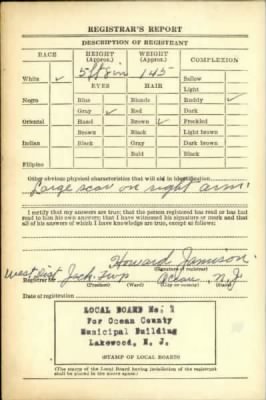 REGISTRAR'S REPORT
DESCRIPTION OF REGISTRANT
RACE HEIGHT (Approx.) WEIGHT (Approx.) COMPLEXION
5 ft 8 in 145
White ✓ EYES HAIR Sallow
Light
Negro Blue Blonde Ruddy ✓
Gray ✓ Red Dark
Oriental Hazel Brown ✓ Freckled
Brown Black Light brown
Indian Black Gray Dark brown
Bald Black
Filipino
Other obvious physical characteristics that will aid in identification
Large scar on right arm.
I certify that my answers are true; that the person registered has read or has had read to him his own answers; that I have witnessed his signature or mark and that all of his answers of which I have knowledge are true, except as follows:
Howard Jamison
(Signature of registrar)
Registrar for West Dist Jack. Twp Ocean N.J.
(Precinct) (Ward) (City or county) (State)
Date of registration
LOCAL BOARD No. 1
For Ocean County
Municipal Building
Lakewood, N. J.
(STAMP OF LOCAL BOARD)
(The stamp of the Local Board having jurisdiction of the registrant shall be placed in the above space.)